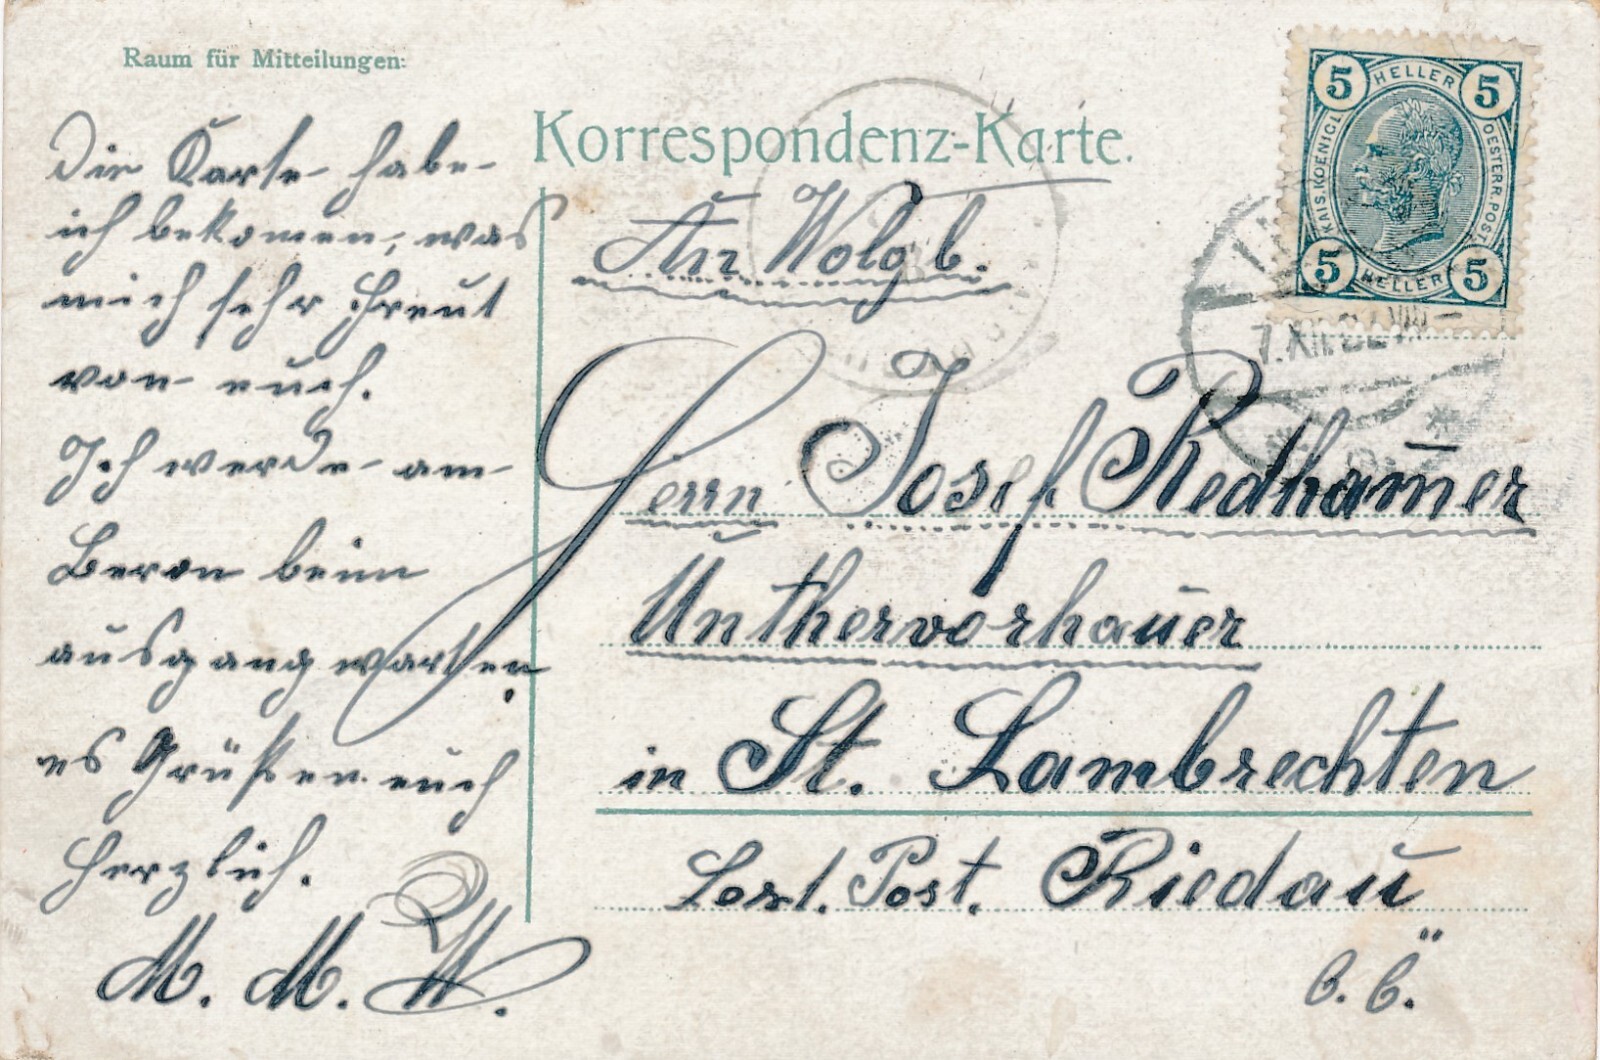 Raum für Mitteilungen:
Korrespondenz-Karte.
5 HELLER 5
KAIS. KOENIGL. OESTERR. POST
5 HELLER 5
7.XII.
Die Karte habe
ich bekomen, was
mich sehr freut
von euch.
Ich werde am
beim
ausgang warten
es Grüßen euch
Herzlich.
M. M. W.
An Wolg b.
Herrn Josef Redham̄er
Unthervorhauer
in St. Lambrechten
Post. Riedau